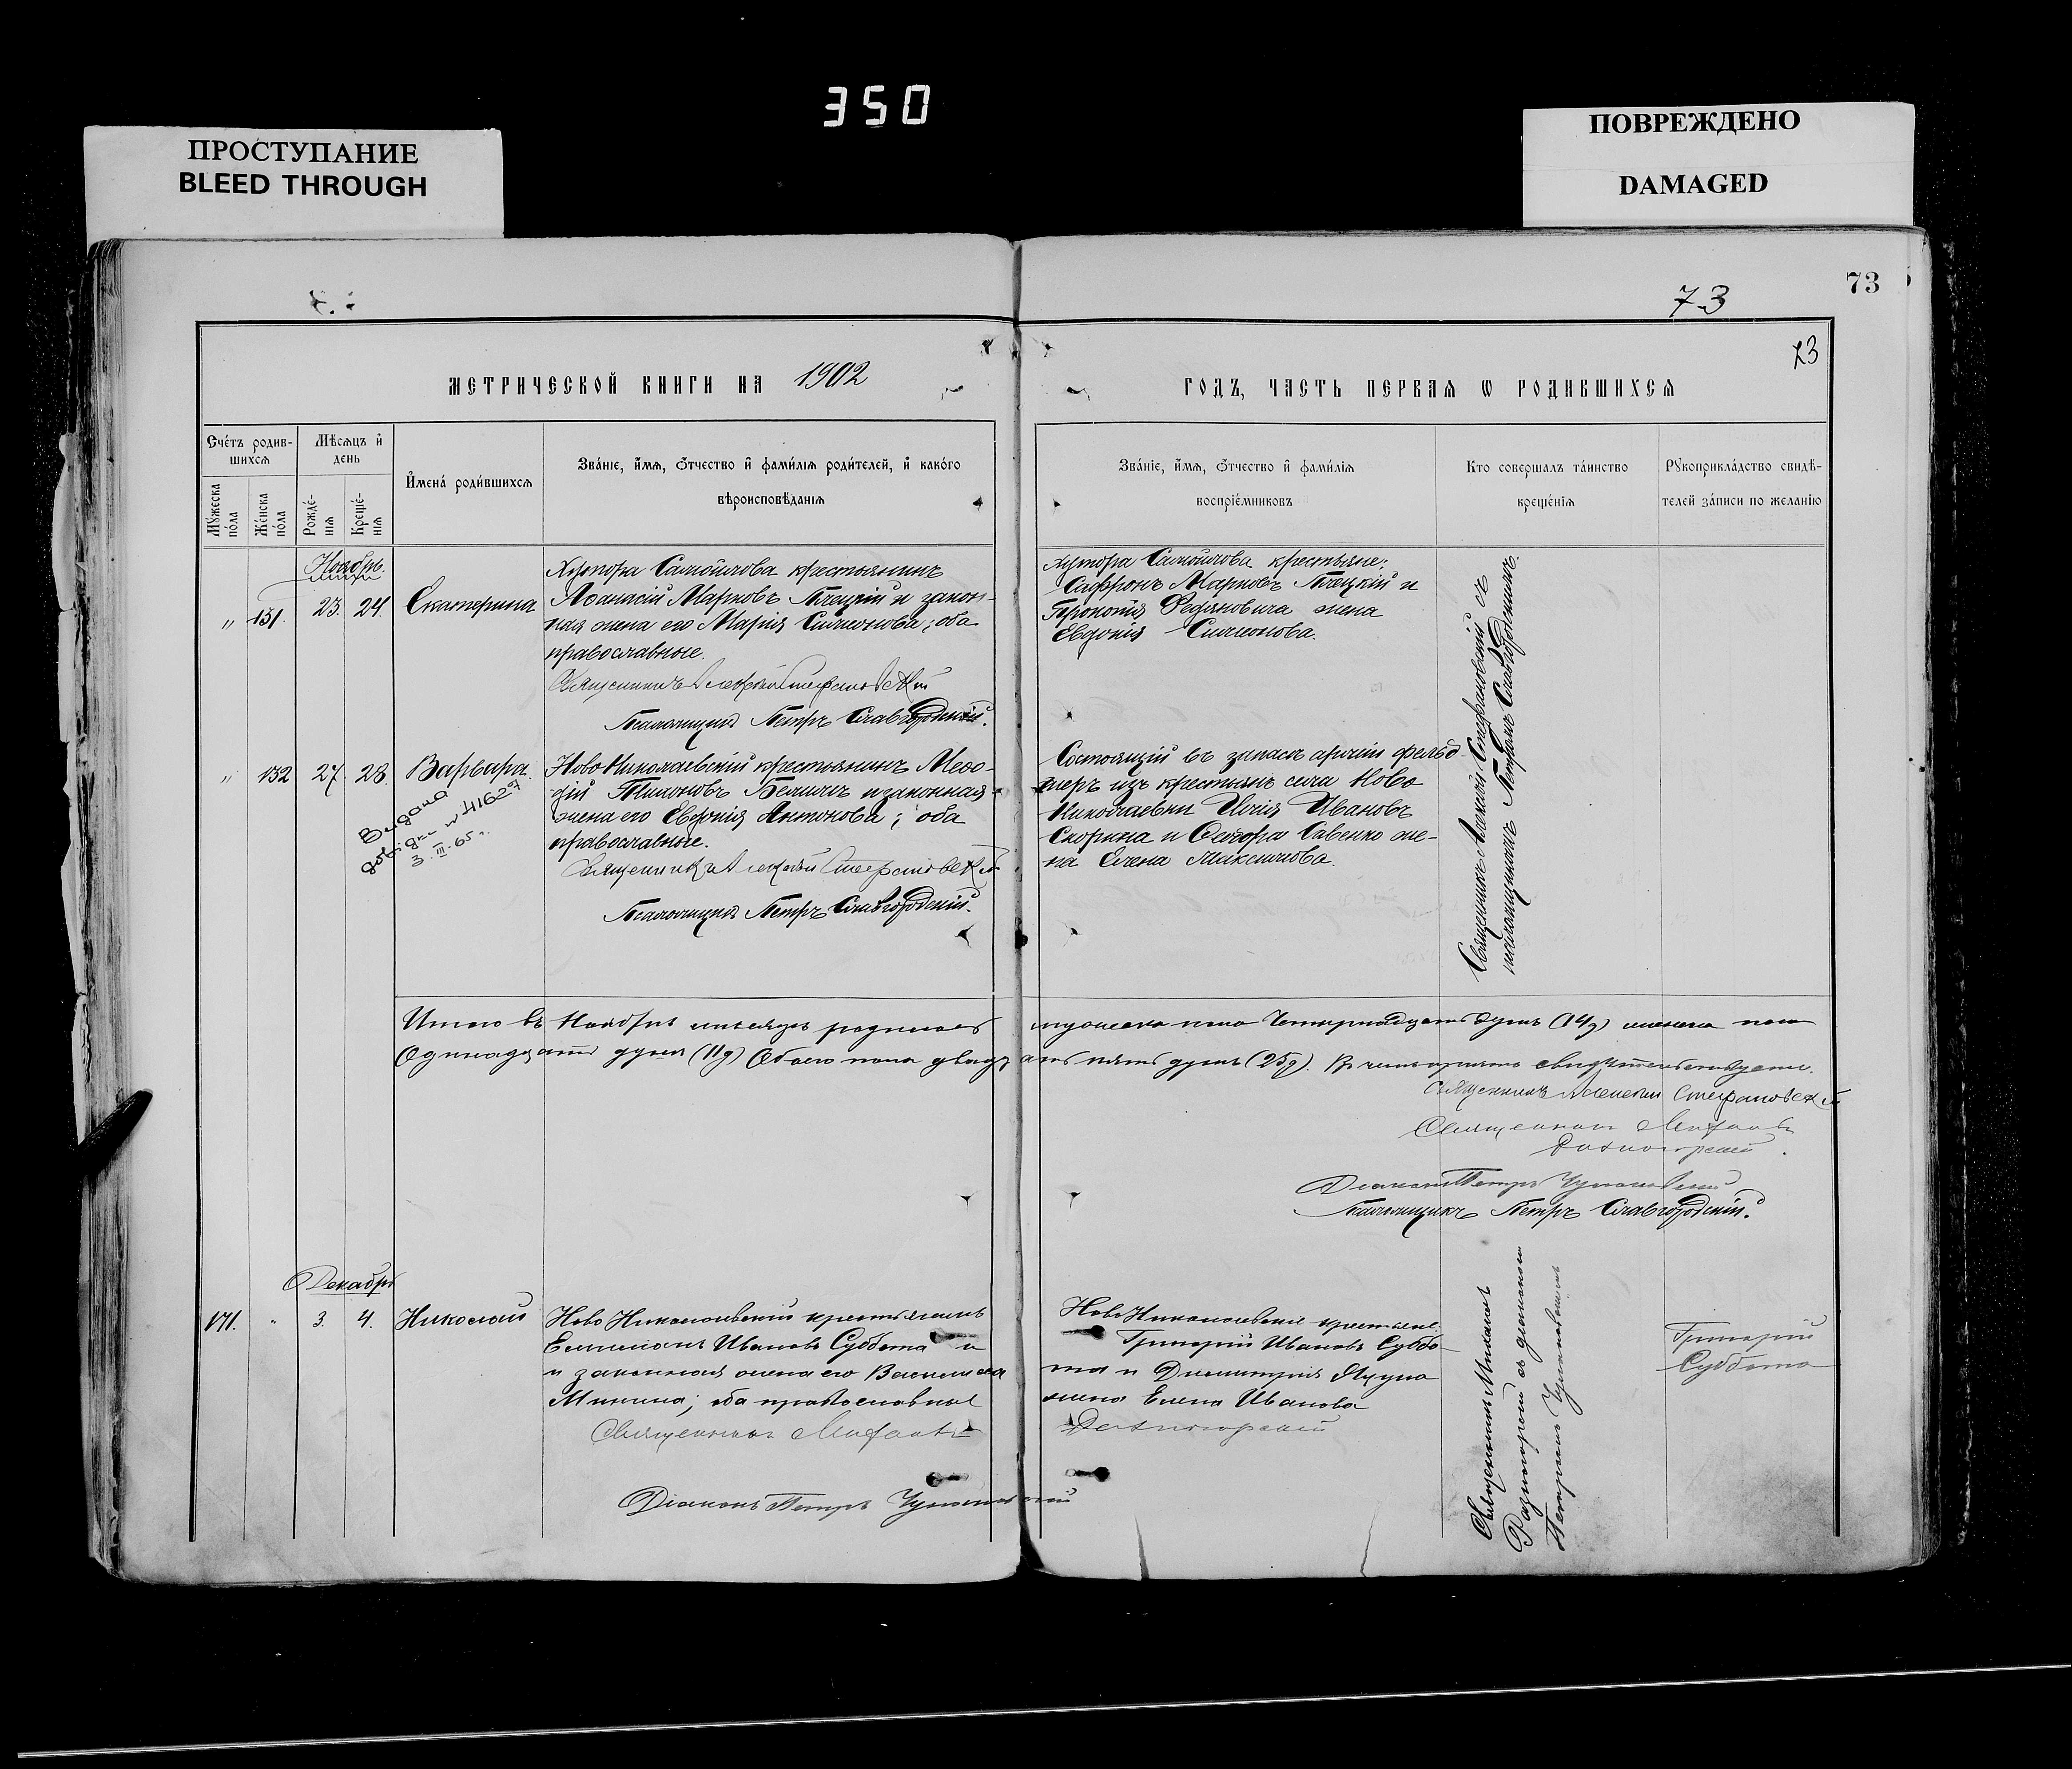 350
ПРОСТУПАНИЕ
BLEED THROUGH
ПОВРЕЖДЕНО
DAMAGED
73
73
73
МЕТРИЧЕСКОЙ КНИГИ НА 1902
ГОДЪ, ЧАСТЬ ПЕРВАЯ Ѡ РОДИВШИХСЯ
Сче́тъ родив-
шихсѧ
Мꙋ́жеска
по́ла
Же́нска
по́ла
Мѣсѧцъ и҆
день
Рожде́-
нїѧ
Креще́-
нїѧ
И҆мена́ роди́вшихсѧ
Зва́нїе, и҆́мѧ, ѻ҆́тчество и҆ фами́лїѧ роди́телей, и҆ како́го
вѣроисповѣ́данїѧ
Зва́нїе, и҆́мѧ, ѻ҆́тчество и҆ фами́лїѧ
воспрїе́мниковъ
Кто соверша́лъ та́инство
креще́нїѧ
Рꙋкоприкла́дство свидѣ́-
телей за́писи по жела́нїю
Ноябрь
" 131. 23. 24. Екатерина
Хутора Самойлова крестьянинъ
Аѳанасій Марковъ Плецкій и закон-
ная жена его Марія Симеонова; оба
православные.
Священникъ Алексѣй Стефановскій
Псаломщикъ Петръ Славгородскій.
хутора Самойлова крестьяне:
Саффронъ Марковъ Плецкій и
жена
Евдокія Симеонова.
Священникъ Алексѣй Стефановскій съ
псаломщикомъ Петромъ Славгородскимъ.
" 132 27. 28. Варвара.
Видана
довідка № 41627
3.III.65 г.
Ново Николаевскій крестьянинъ Меѳо-
дій Тихоновъ и законная
жена его Евдокія Антонова; оба
православные.
Священникъ Алексѣй Стефановскій
Псаломщикъ Петръ Славгородскій.
Состоящій въ запасѣ арміи фельд-
шеръ изъ крестьянъ села Ново
Николаевки Илія Ивановъ
Скорина и Ѳеодора Савенко же-
на Елена Максимова.
Итого въ Ноябрѣ мѣсяцѣ родилось мужеска пола Четырнадцать душъ (14д) женска пола
Одинадцать душъ (11д) Обоего пола двадцать пять душъ (25д). Въ чемъ и свидѣтельствуемъ.
Священникъ Алексѣй Стефановскій
Священникъ Михаилъ
Діаконъ Петръ
Псаломщикъ Петръ Славгородскій.
Декабрь
171. " 3. 4. Николай
Ново Николаевскій крестьянинъ
Емиліанъ Ивановъ Суббота и
и законная жена его Василиса
Минина; оба православные
Священникъ Михаилъ
Діаконъ Петръ
Ново Николаевскіе крестьяне
Григорій Ивановъ Суббо-
та и Димитрія
жена Елена Иванова
Священникъ Михаилъ
съ діакономъ
Петромъ
Григорій
Суббота